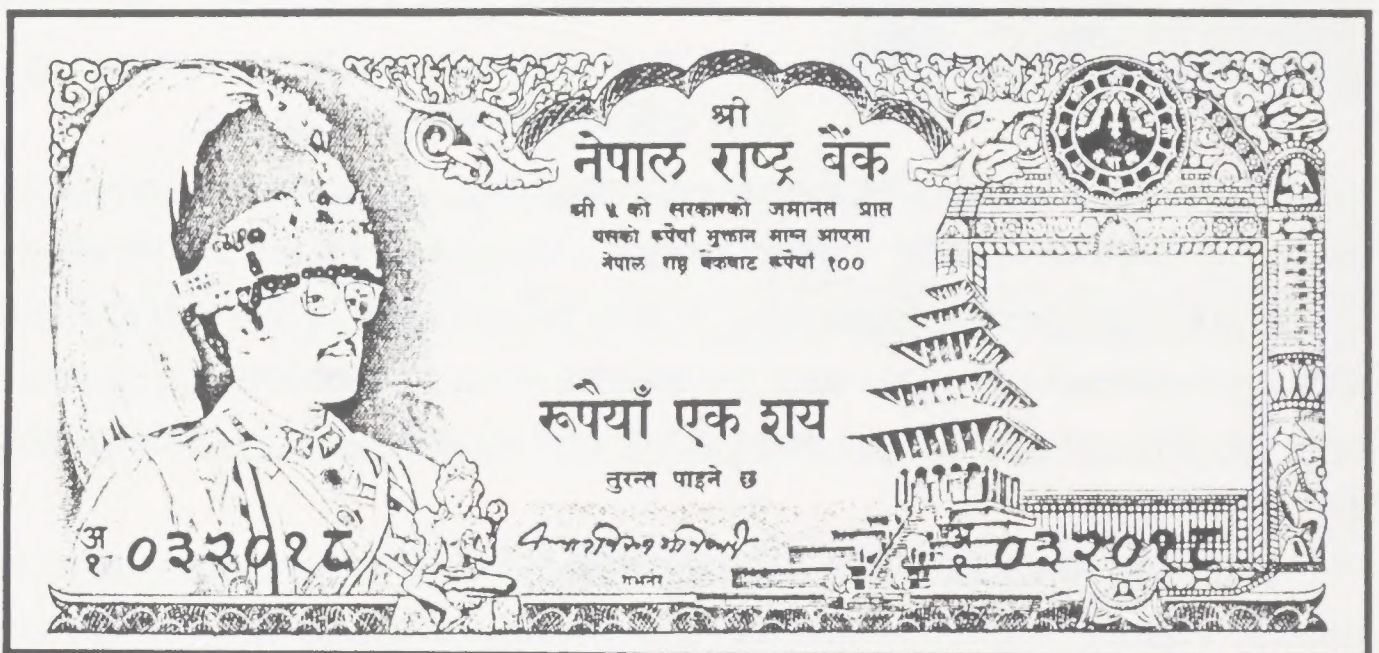 श्री
नेपाल राष्ट्र बैंक
श्री ५ को सरकारको जमानत प्राप्त
यसको रूपैयाँ भुक्तान माग्न आएमा
नेपाल राष्ट्र बैंकबाट रूपैयाँ १००
रूपैयाँ एक शय
तुरन्त पाइने छ
गभर्नर
अ
१ ०३२०१८
अ
१ ०३२०१८